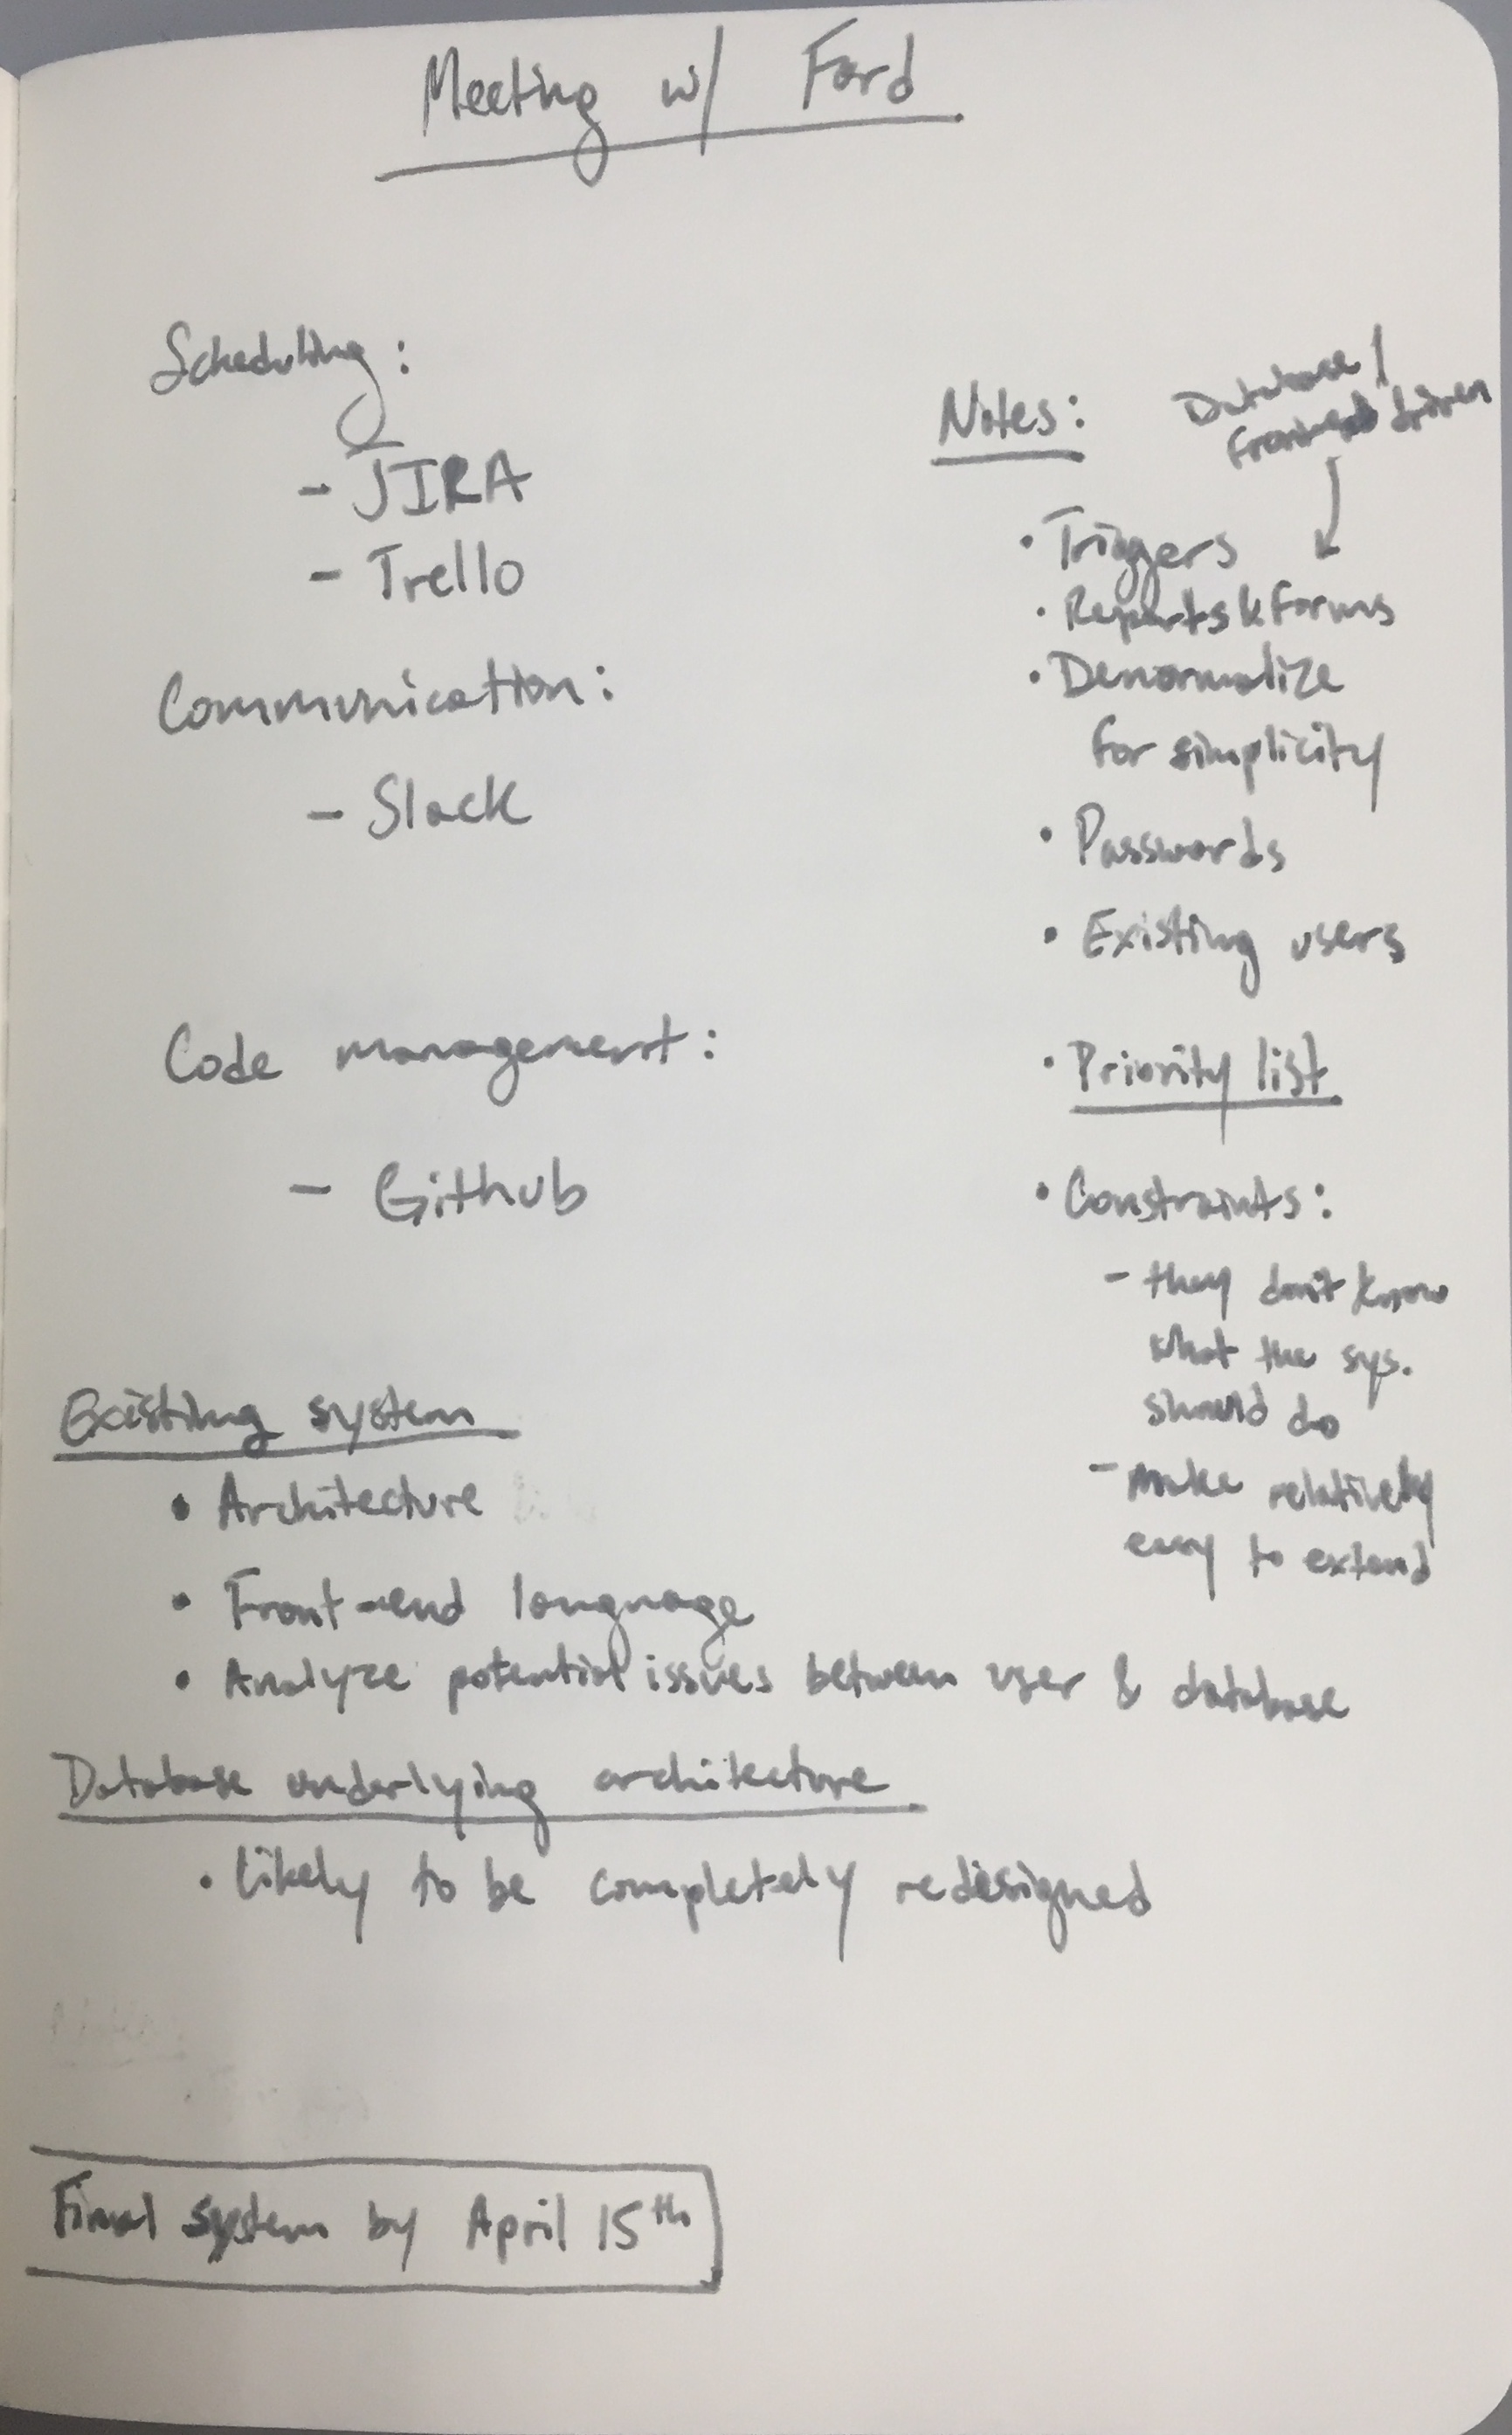 Meeting w/ Ford
Scheduling:
- JIRA
- Trello
Communication:
- Slack
Code management:
- Github
Notes:
Database/
frontend driven
• Triggers
• Reports & forms
• Denormalize
for simplicity
• Passwords
• Existing users
• Priority list
• Constraints:
- they don't know
what the sys.
should do
- make relatively
easy to extend
Existing system
• Architecture
• Front-end language
• Analyze potential issues between user & database
Database underlying architecture
• likely to be completely redesigned
Final system by April 15th